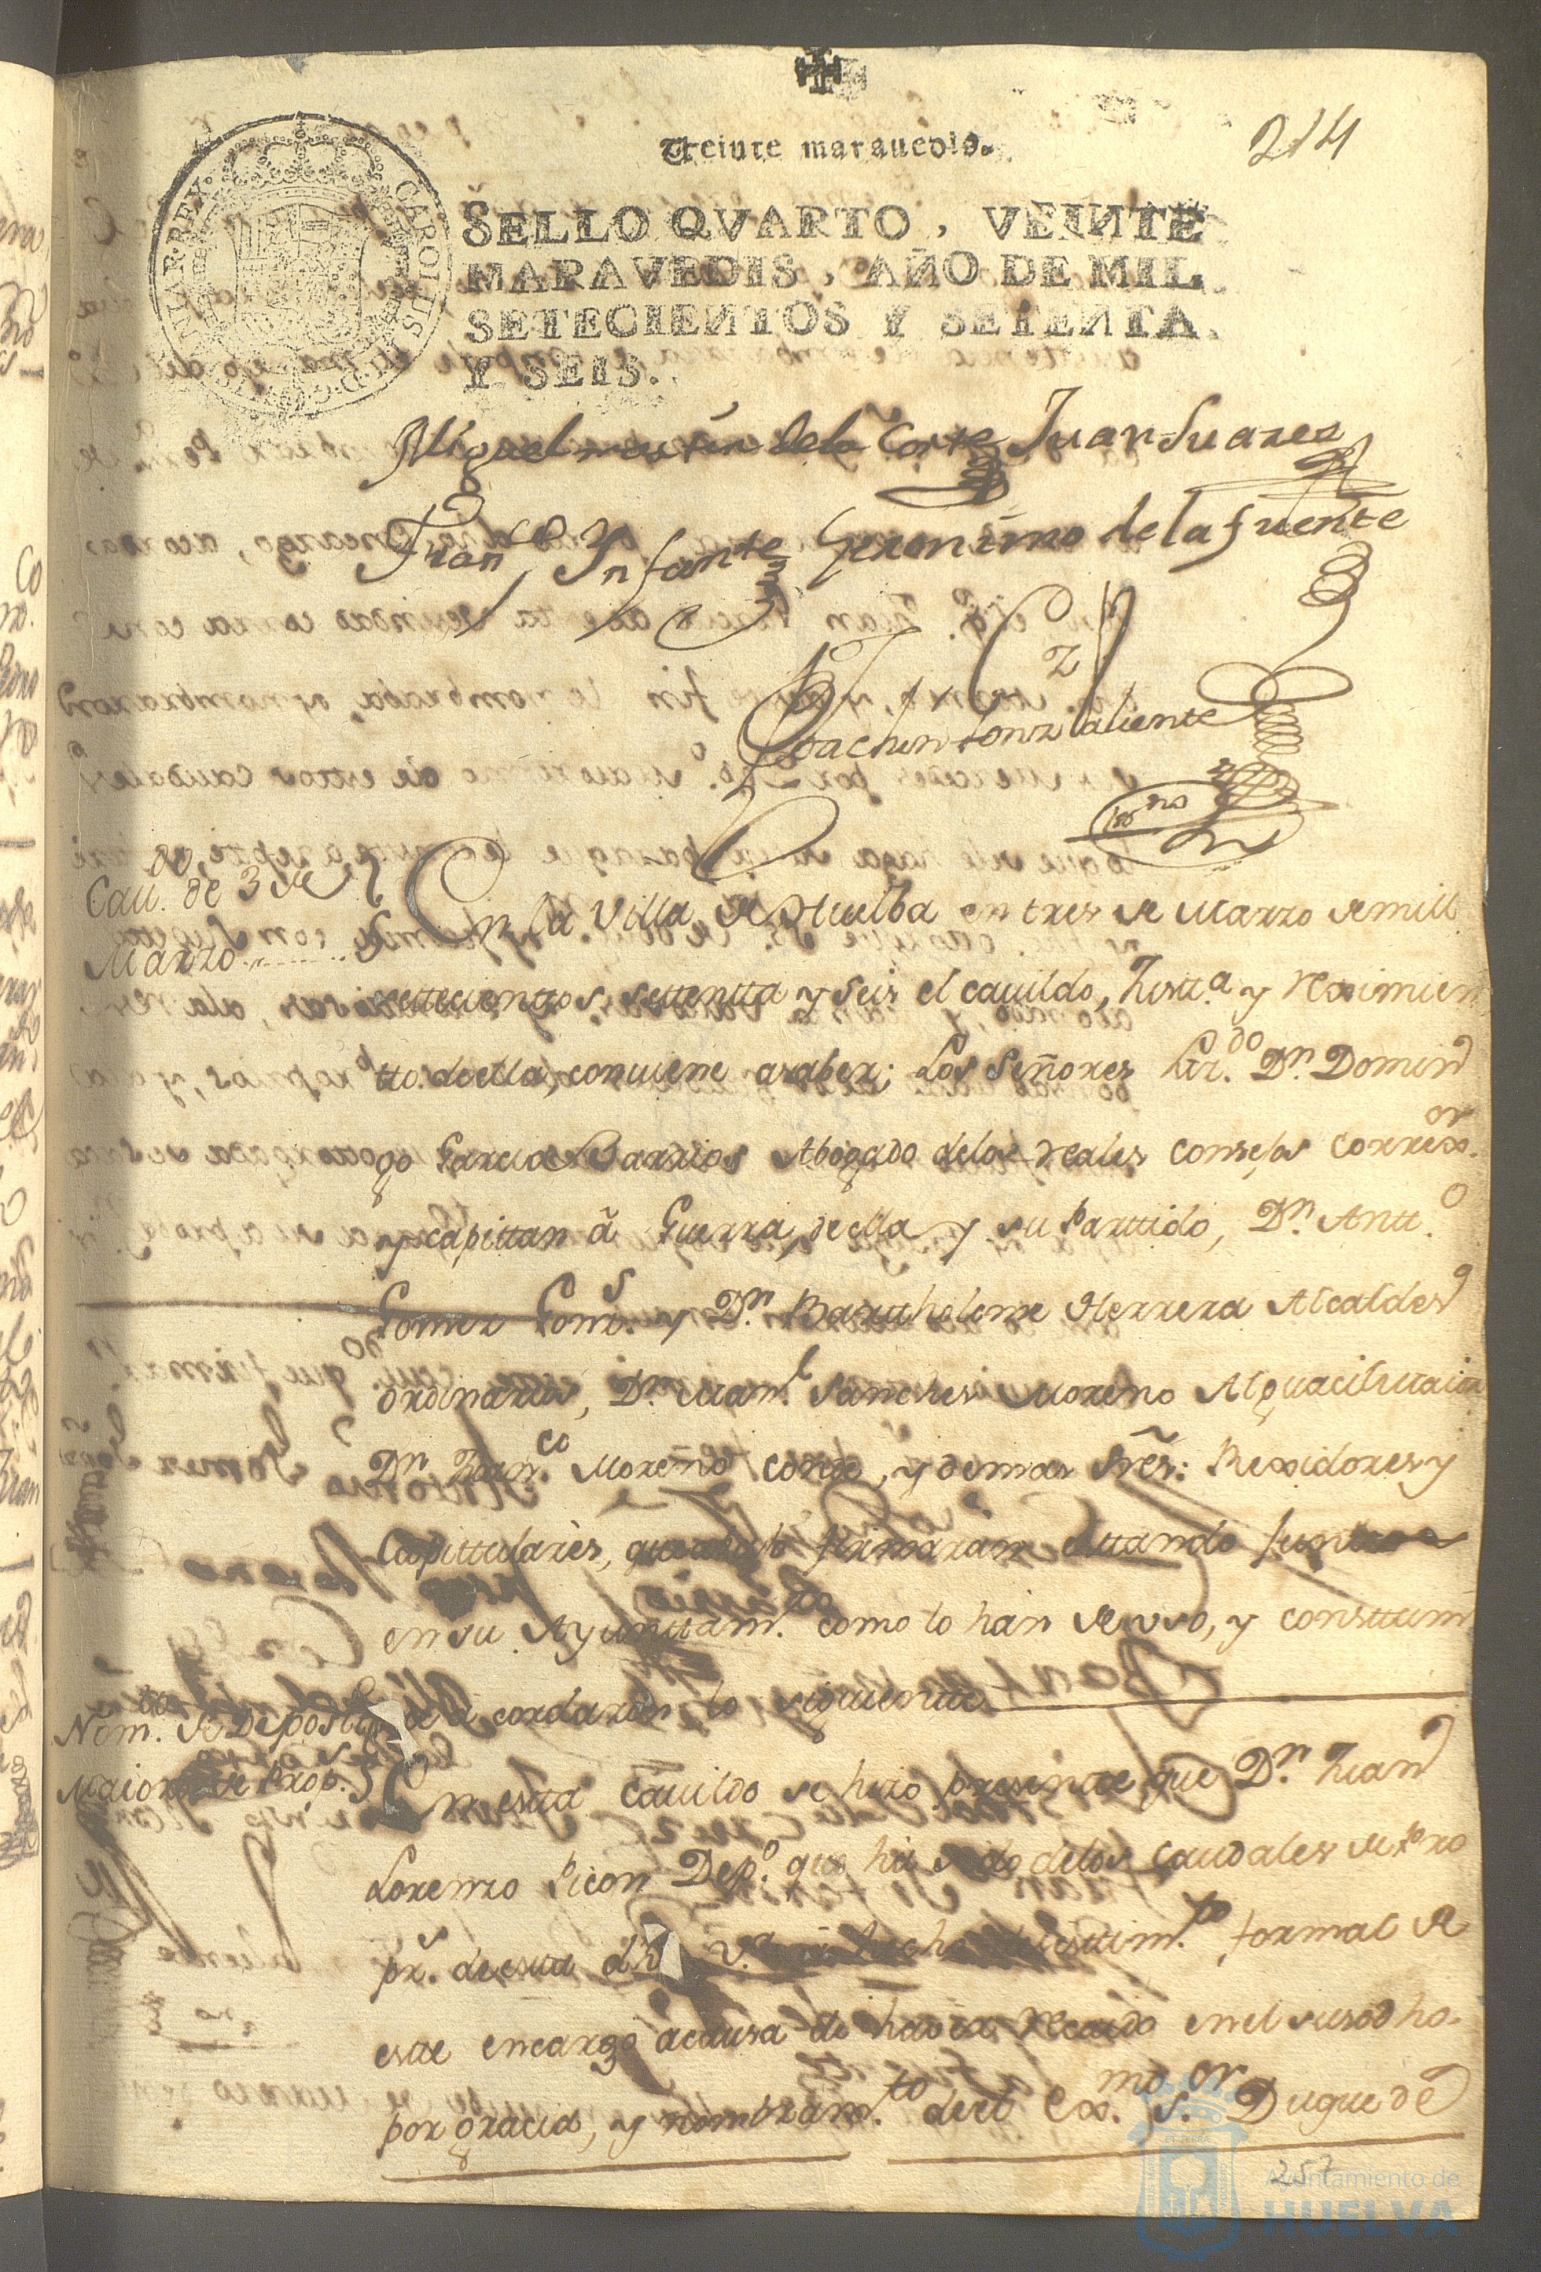 Veinte maravedis.
214
CAROLUS III D. G. HISPANIAR. REX.
SELLO QVARTO, VEINTE
MARAVEDIS, AÑO DE MIL
SETECIENTOS Y SETENTA
Y SEIS.
Miguel martin de la Corte Juan Suarez
Fran.co Infante Geronimo de la fuente
Joachin Gonz laliente
ss.no
Cau.do de 3 de
Marzo
En la Villa de Huelba en tres de Marzo de mill
settecienttos, settentta y seis el cavildo, Justt.a y Reximien
tto. de ella, conviene a saber; Los Señores Liz.do Dn. Domin
go Garcia Barrios Abogado delos reales Consejos Correx.or
y capittan â Guerra, de ella y su Parttido, Dn. Antt.o
Gomez Gom.s y Dn. Bartholome Herrera Alcaldes
ordinarios, Dn. Man.l Sanches Moreno Alguacil maior
Dn. Fran.co Moreno Conde, y demas Sres: Rexidores y
Capittulares, que abajo firmarán esttando junttos
en su Ayunttam.to como lo han de uso, y consttum
bre acordaron lo siguiente
Nom.tto de Deposit.o
Maior.mo de Prop.s
En estta Cavildo se hizo presentte que Dn. Juan
Lorenzo Picon Dep.o que há sido delos Caudales de Pro
pr.s de estta dha V.a há hecho desistim.to formal de
este encargo â causa de haver recaido en el susodho.
por gracia, y nombram.to de el Ex.mo S.or Duque de
257
Ayuntamiento de
HUELVA